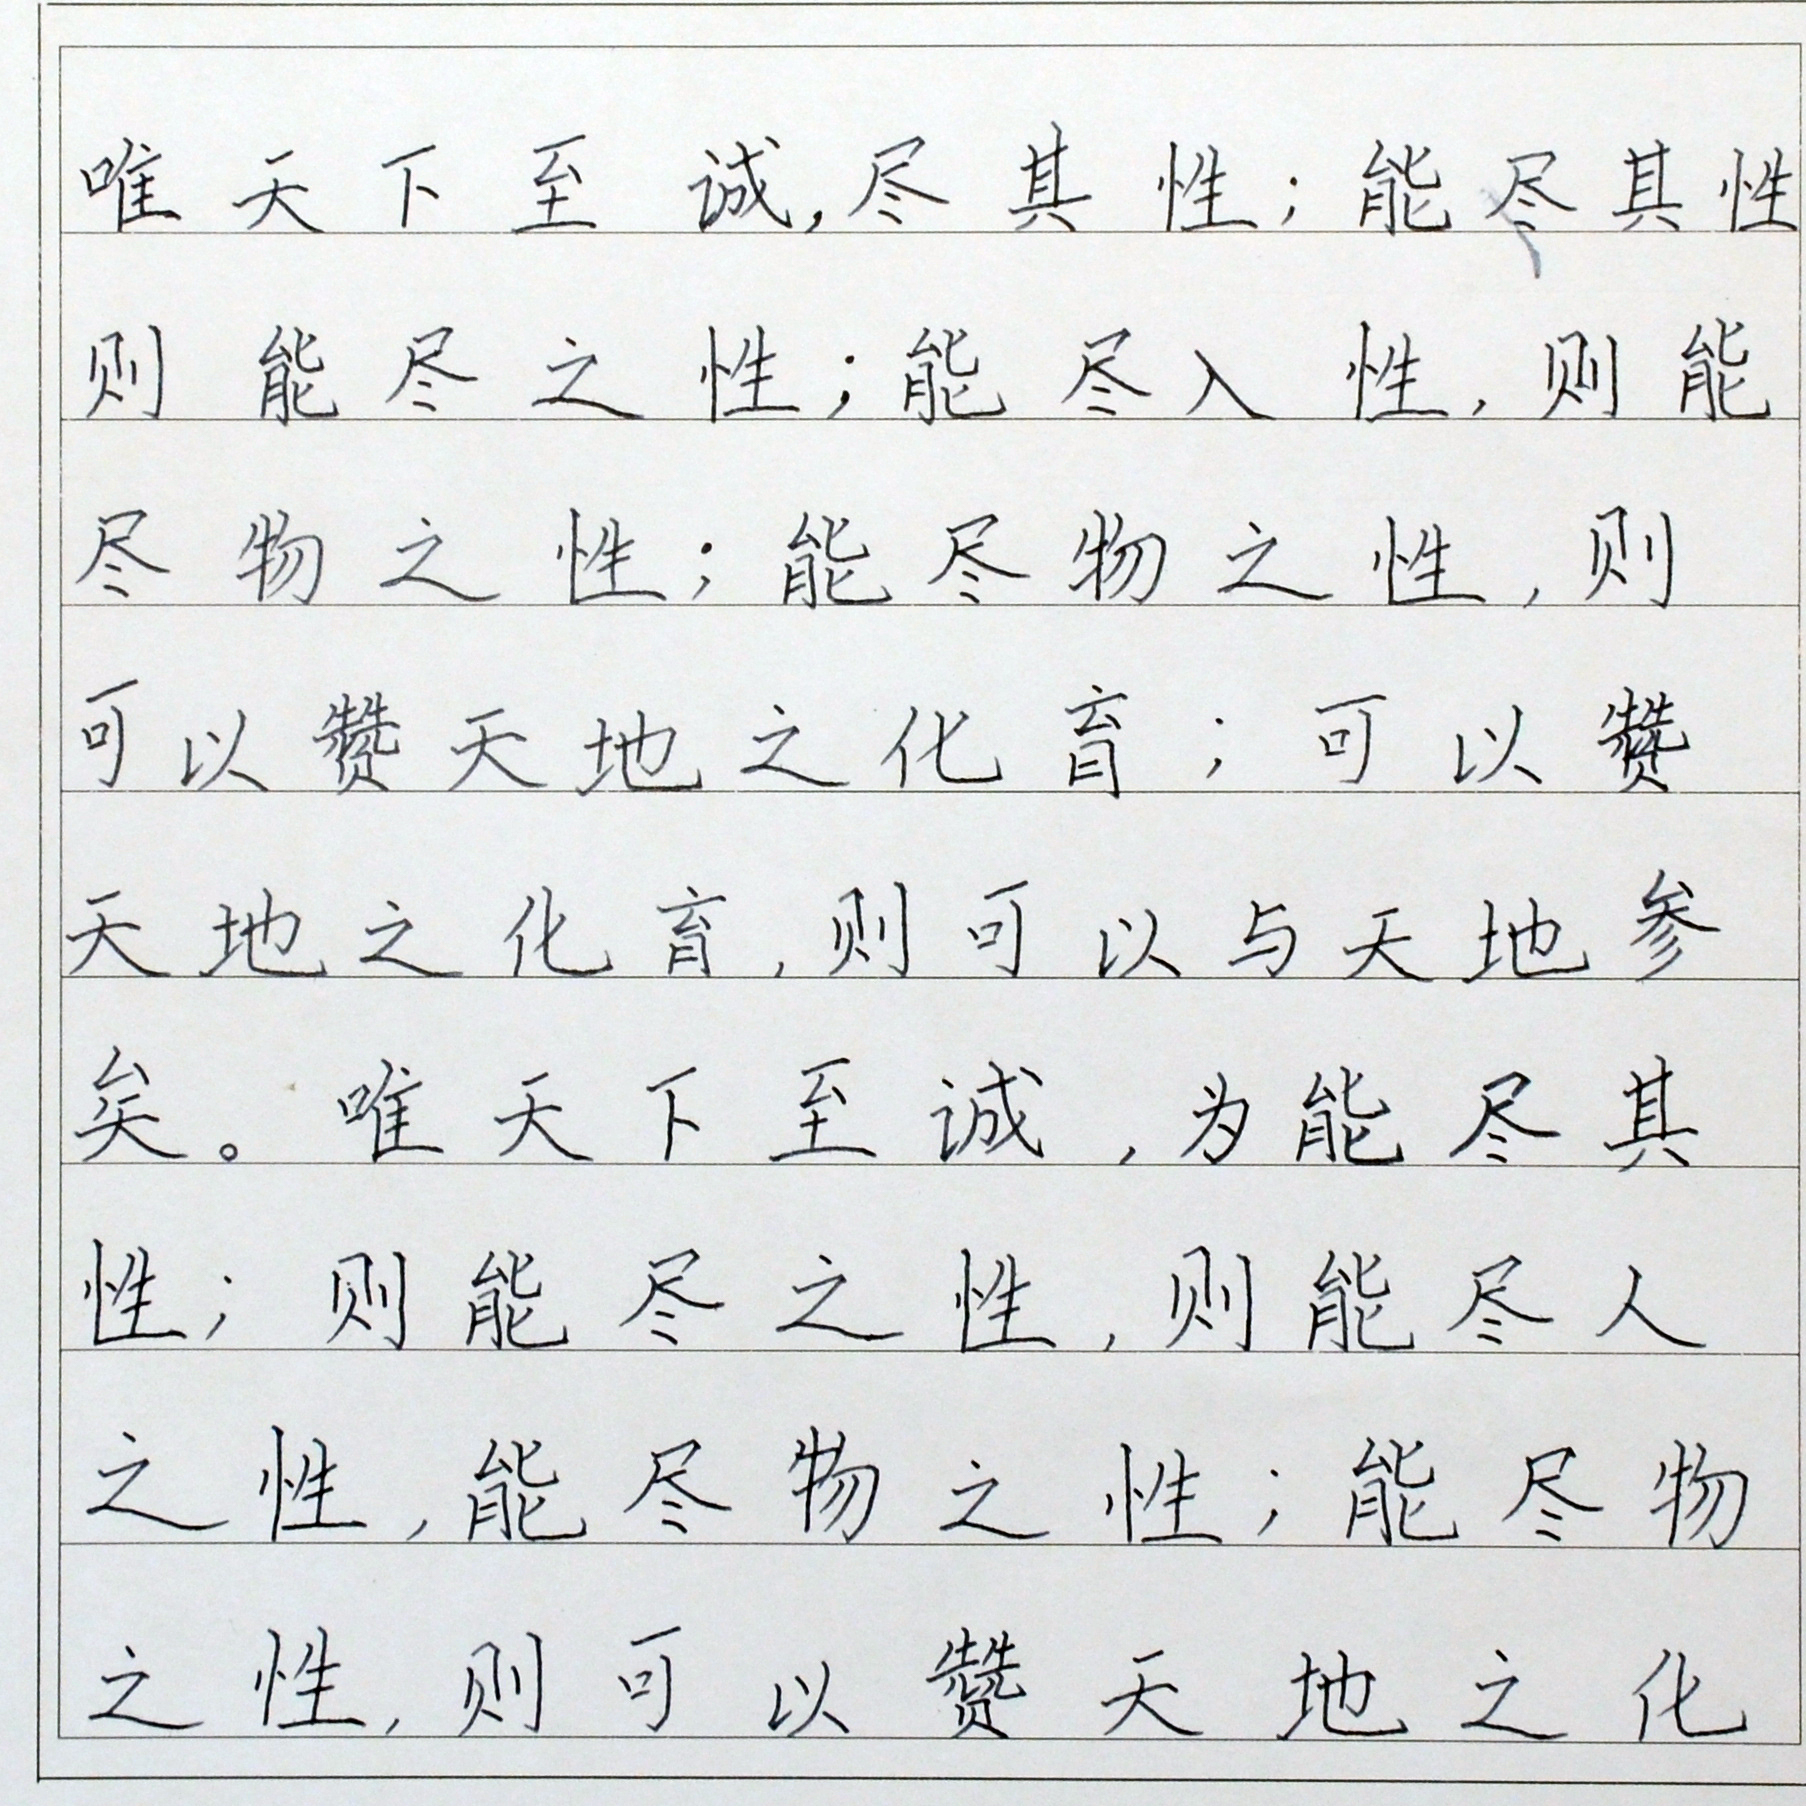 唯天下至诚,尽其性;能尽其性
则能尽之性;能尽入性,则能
尽物之性;能尽物之性,则
可以赞天地之化育;可以赞
天地之化育,则可以与天地参
矣。唯天下至诚,为能尽其
性;则能尽之性,则能尽人
之性,能尽物之性;能尽物
之性,则可以赞天地之化